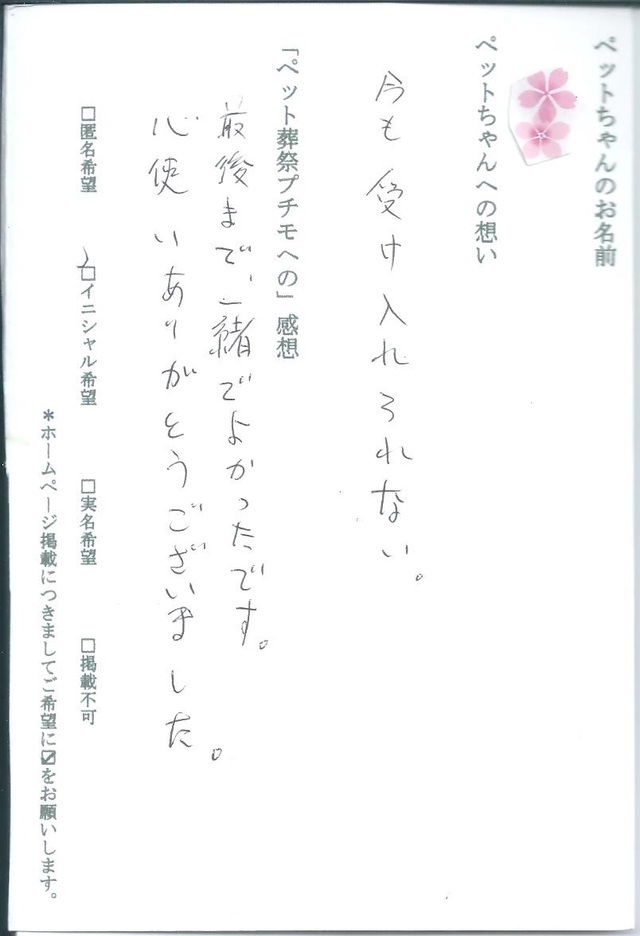 ペットちゃんのお名前
ペットちゃんへの想い
今も受け入れられない。
「ペット葬祭プチモへの」感想
最後まで、一緒でよかったです。
心使いありがとうございました。
□匿名希望 □イニシャル希望 □実名希望 □掲載不可
*ホームページ掲載につきましてご希望に☑をお願いします。